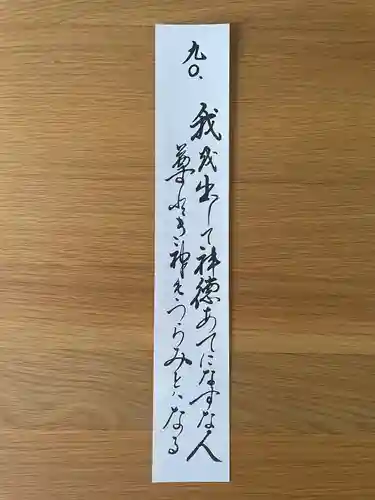 九〇.
我が出して神徳あてになすな人
尊とき神もうらみとハなる